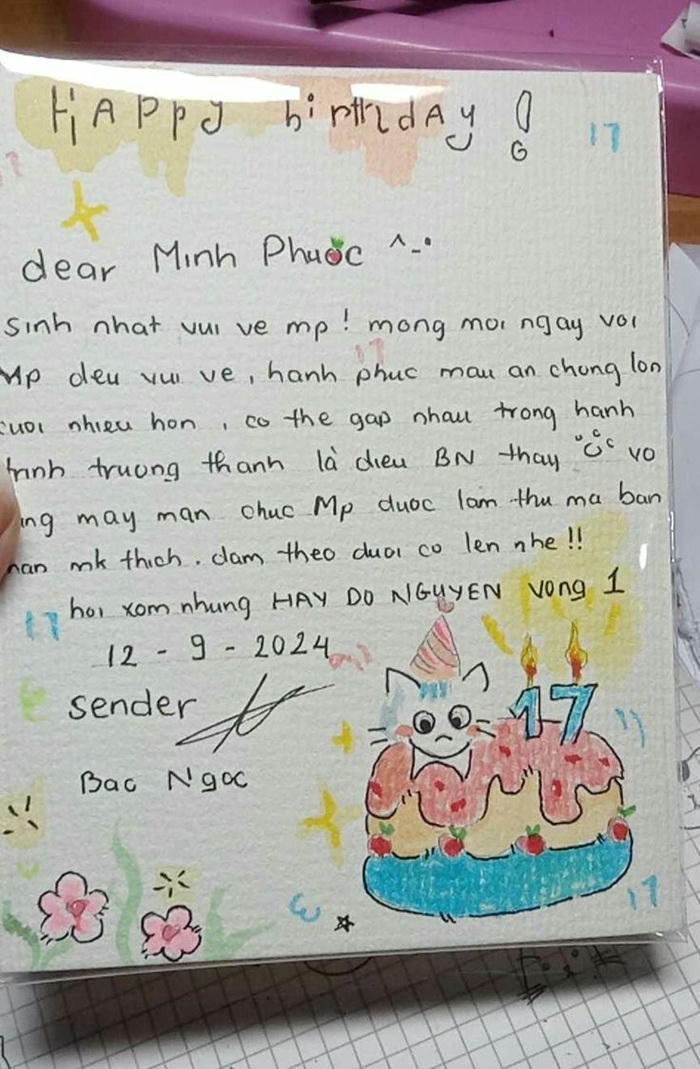 HAPPY birthdAy !
17
dear Minh Phước ^-•
sinh nhat vui ve mp ! mong moi ngay voi
Mp deu vui ve, hanh phuc mau an chong lon
cuoi nhieu hon, co the gap nhau trong hanh
trinh truong thanh là dieu BN thay vo
ng may man chuc Mp duoc lam thu ma ban
than mk thich. dam theo duoi co len nhe !!
17 hoi xom nhung HAY DO NGUYEN vong 1
12 - 9 - 2024
sender
17
Bac Ngoc
17